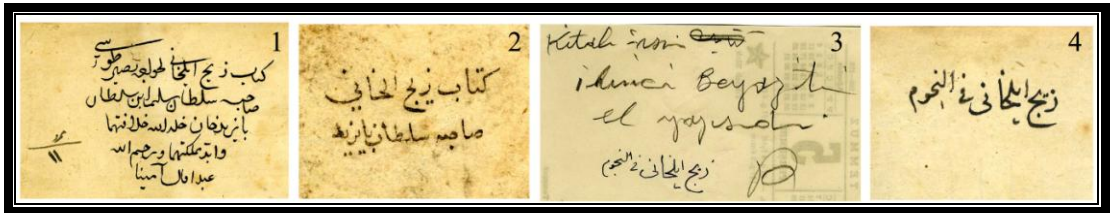 1
كتاب زيج ايلخانى لمولانا نصير طوسى
صاحبه سلطان سليم ابن سلطان
بايزيد خان خلد الله خلافتهما
وابد مملكتهما ورحم الله
عبدا قال آمينا
١١
2
كتاب زيج الخانى
صاحبه سلطان بايزيد
3
Kitab ismi
ikinci Beyazıtı
el yazısıdı
زيج ايلخانى فى النجوم
5
4
زيج ايلخانى فى النجوم